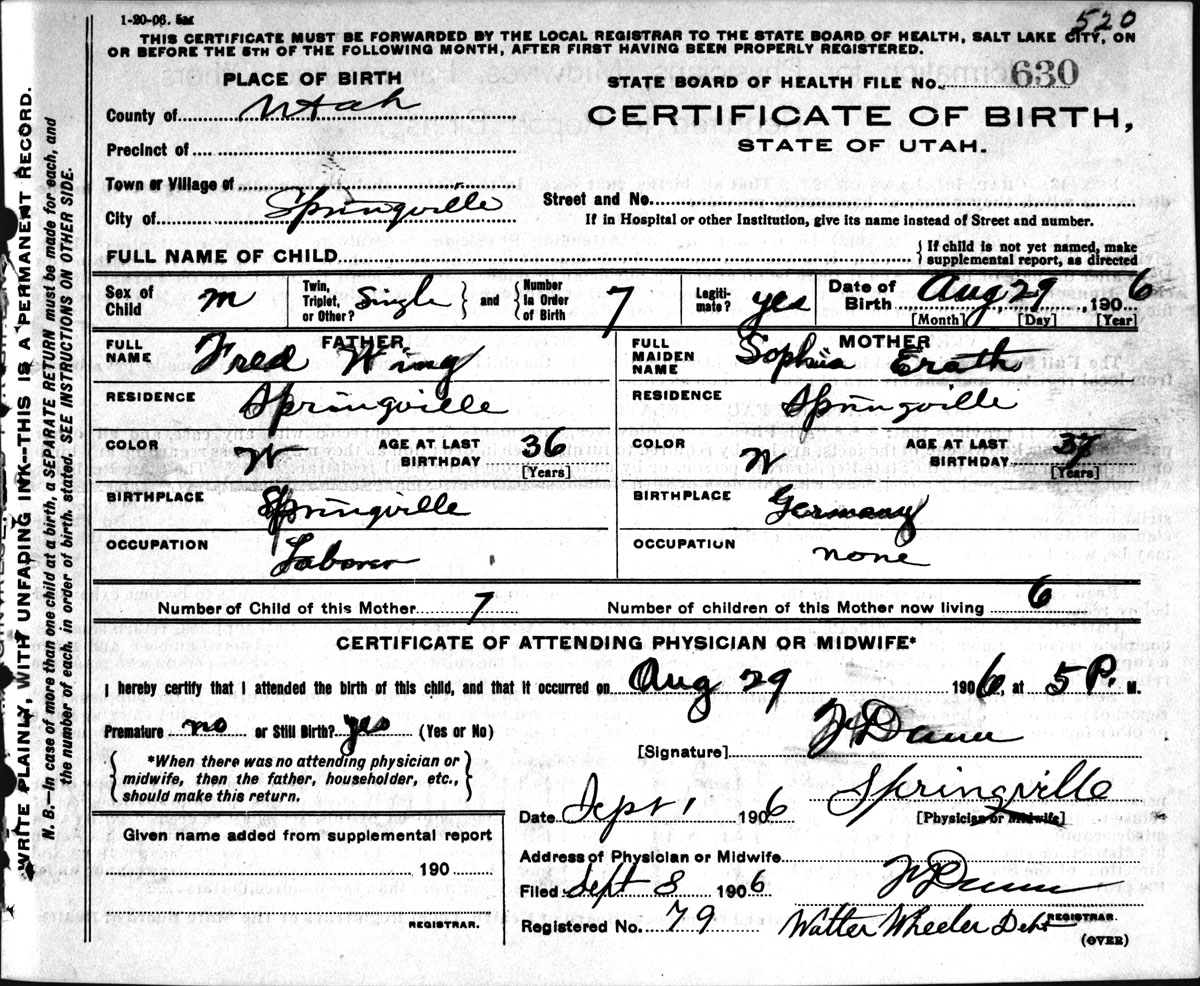 1-20-06.
520
THIS CERTIFICATE MUST BE FORWARDED BY THE LOCAL REGISTRAR TO THE STATE BOARD OF HEALTH, SALT LAKE CITY, ON
OR BEFORE THE 5TH OF THE FOLLOWING MONTH, AFTER FIRST HAVING BEEN PROPERLY REGISTERED.
WRITE PLAINLY, WITH UNFADING INK--THIS IS A PERMANENT RECORD.
N. B.—In case of more than one child at a birth, a SEPARATE RETURN must be made for each, and
the number of each, in order of birth, stated. SEE INSTRUCTIONS ON OTHER SIDE.
PLACE OF BIRTH
STATE BOARD OF HEALTH FILE No. 630
County of Utah
CERTIFICATE OF BIRTH,
STATE OF UTAH.
Precinct of
Town or Village of
City of Springville
Street and No.
If in Hospital or other Institution, give its name instead of Street and number.
FULL NAME OF CHILD
{ If child is not yet named, make
supplemental report, as directed
Sex of Child m
Twin, Triplet, or Other? Single } and { Number In Order of Birth 7
Legiti-mate? yes
Date of Birth Aug, 29, 1906
[Month] [Day] [Year]
FATHER
FULL NAME Fred Wing
MOTHER
FULL MAIDEN NAME Sophia Erath
RESIDENCE Springville
RESIDENCE Springville
COLOR W AGE AT LAST BIRTHDAY 36 [Years]
COLOR W AGE AT LAST BIRTHDAY 37 [Years]
BIRTHPLACE Springville
BIRTHPLACE Germany
OCCUPATION Laborer
OCCUPATION none
Number of Child of this Mother 7
Number of children of this Mother now living 6
CERTIFICATE OF ATTENDING PHYSICIAN OR MIDWIFE*
I hereby certify that I attended the birth of this child, and that it occurred on Aug 29 1906, at 5 P. M.
Premature no or Still Birth? yes (Yes or No)
[Signature] Dunn
{ *When there was no attending physician or
midwife, then the father, householder, etc.,
should make this return. }
Date Sept 1 1906 Springville
[Physician or Midwife]
Given name added from supplemental report
190
REGISTRAR.
Address of Physician or Midwife
Filed Sept 8 1906 Dunn
Registered No. 79 Walter Wheeler Debt
REGISTRAR.
(OVER)